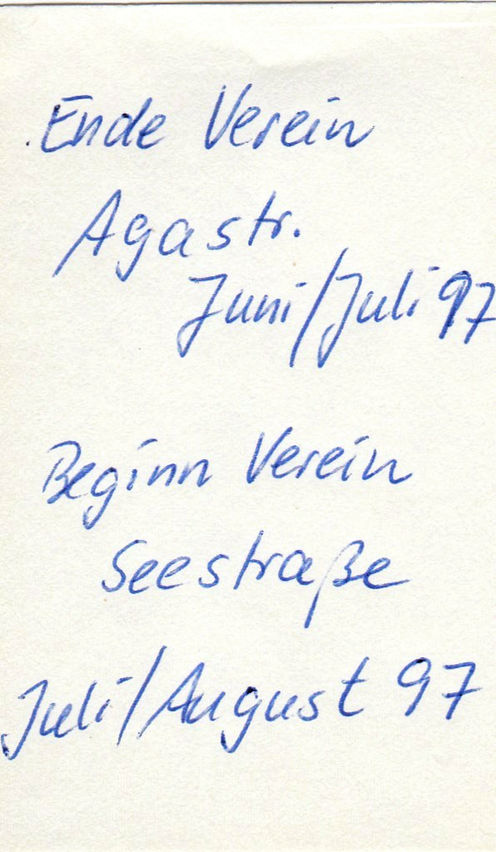 Ende Verein
Agastr.
Juni/Juli 97
Beginn Verein
Seestraße
Juli/August 97